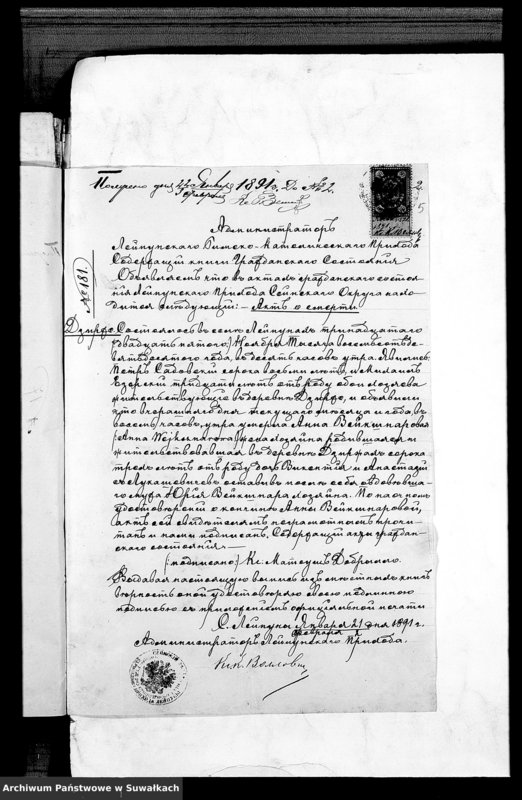 Получено дня 22 Января 1891 г. До №22.
3 Февраля
Администраторъ
Лейпунскаго Римско-Католическаго Прихода
Содержащій книги Гражданскаго Состоянія
Объявляетъ что въ актахъ гражданскаго состоя
нія Лейпунскаго Прихода Сейнскаго Округа нахо-
дится слѣдующій: Актъ о смерти.
№181.
Состоялось въ селѣ Лейпунахъ тринадцатаго
(двадцать пятаго) Ноября мѣсяца восемьсотъ де-
вяностаго года, въ десять часовъ утра. Явились
Петръ Садовскій сорока восьми лѣтъ, и
тридцати лѣтъ отъ роду оба хозяева
жительствующіе въ деревнѣ и объявили
что вчерашняго дня текущаго мѣсяца и года въ
восемь часовъ утра умерла Анна Вейкшнарова
(Anna Wejksznarowa) жена хозяина родившаяся и
жительствовавшая въ деревнѣ сорока
трехъ лѣтъ отъ роду дочь Викентія и Анастасіи
Лукашевичевъ оставивъ послѣ себя овдовѣвша-
го мужа Юрія Вейкшнара хозяина. По настояш.
удостовѣреніи о кончинѣ Анны Вейкшнаровой,
актъ сей свидѣтелямъ неграмотнымъ прочи-
танъ и нами подписанъ. Содержащій акты граждан-
скаго состоянія
(подписано) Кс. Матеушъ Добрылло.
Выдавая настоящую выпись изъ книгъ
вѣрность оной удостовѣряю своею подлинною
подписью съ приложеніемъ оффиціальной печати
С. Лейпуны Января 21 дня 1891 г.
Февраля 2
Администраторъ Лейпунскаго Прихода.
Кс. К. Воллович
Archiwum Państwowe w Suwałkach